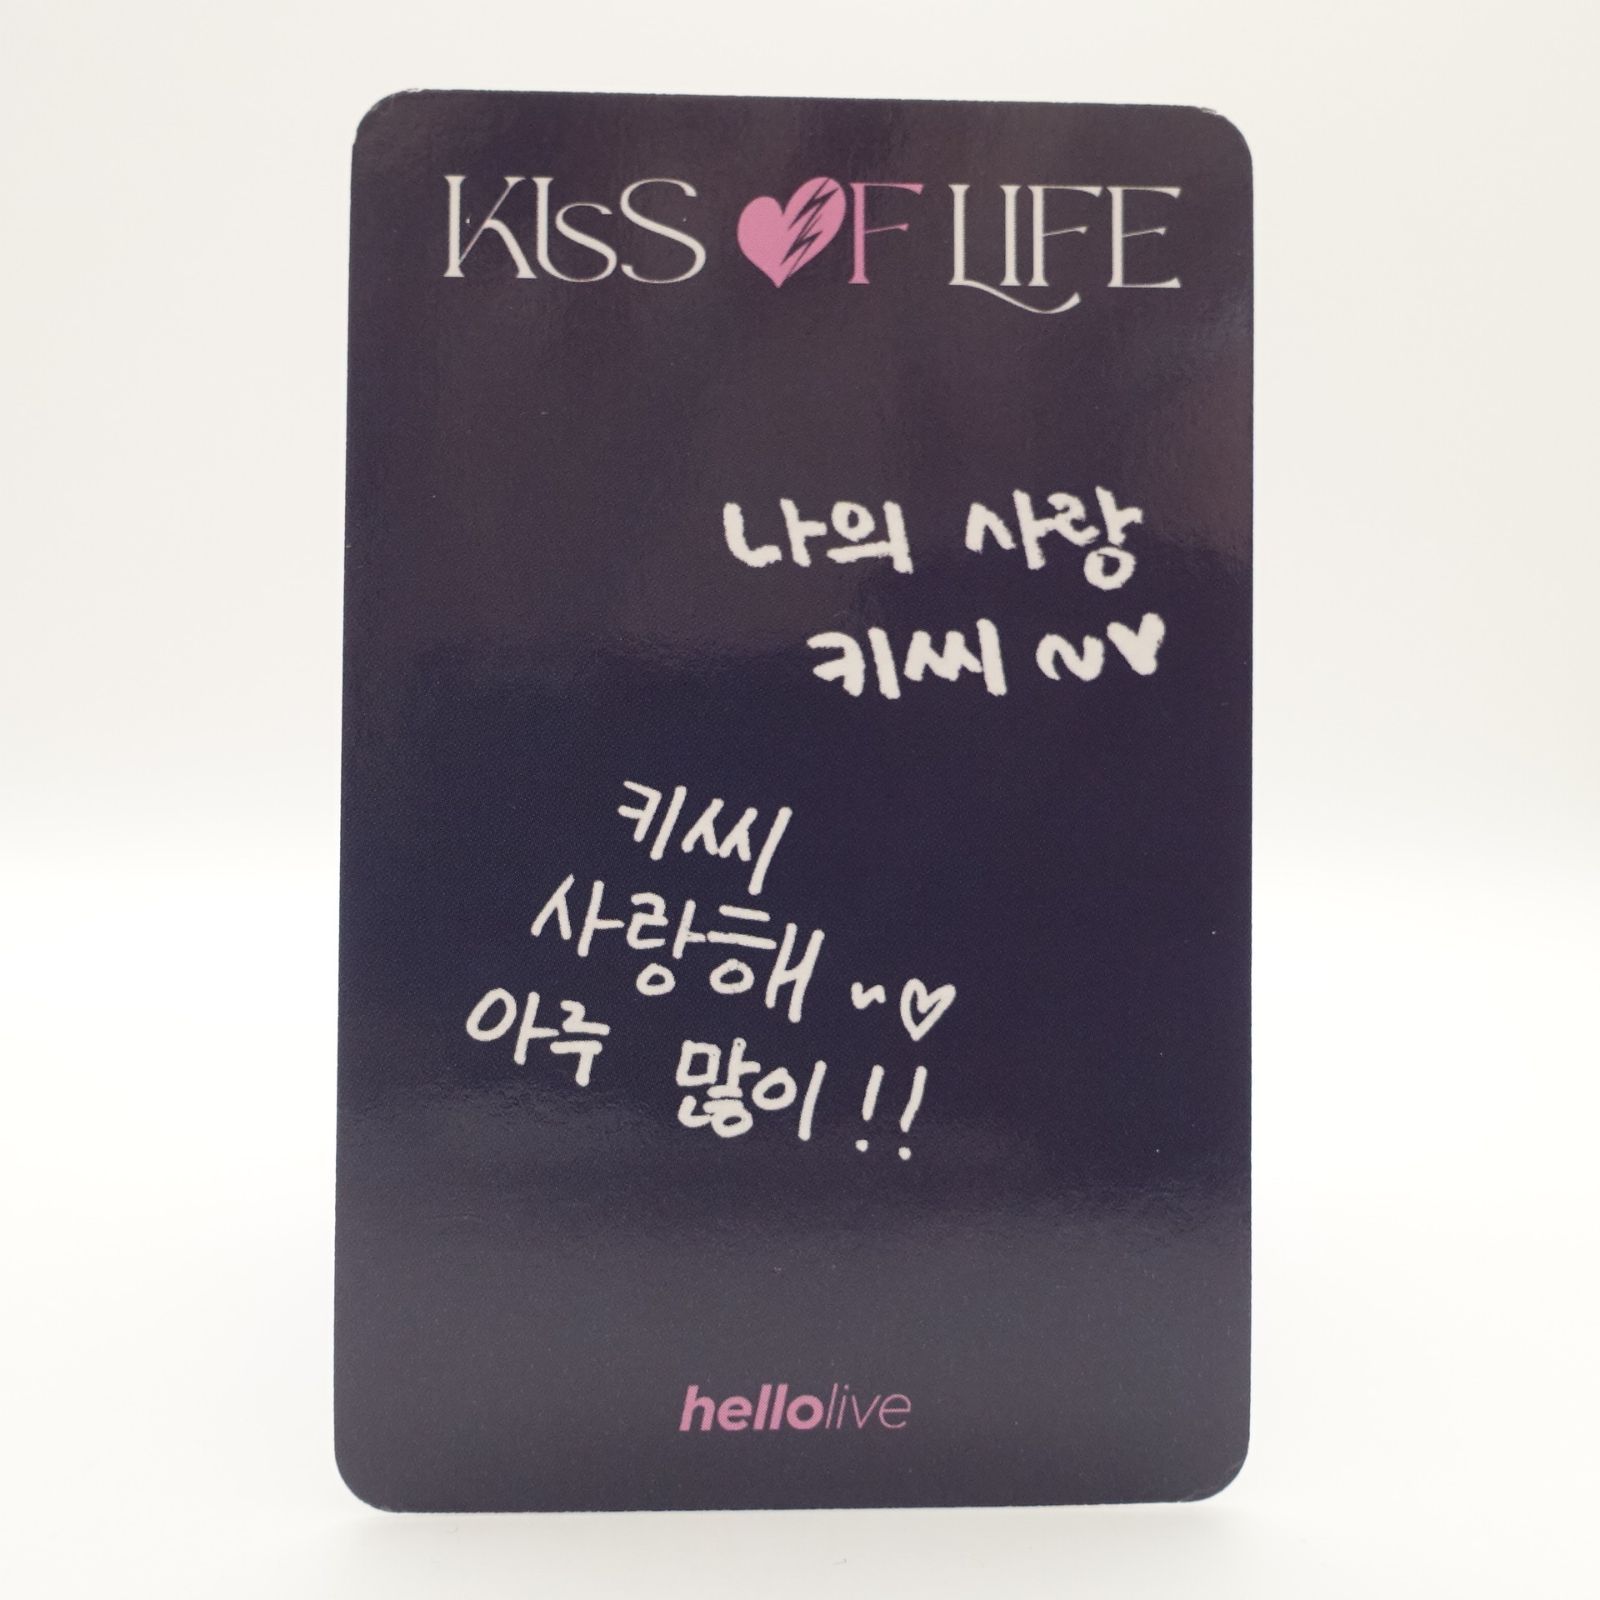 KISS OF LIFE
나의 사랑
키씨 ~♥
키씨
사랑해 ~♡
아주 많이!!
hellolive